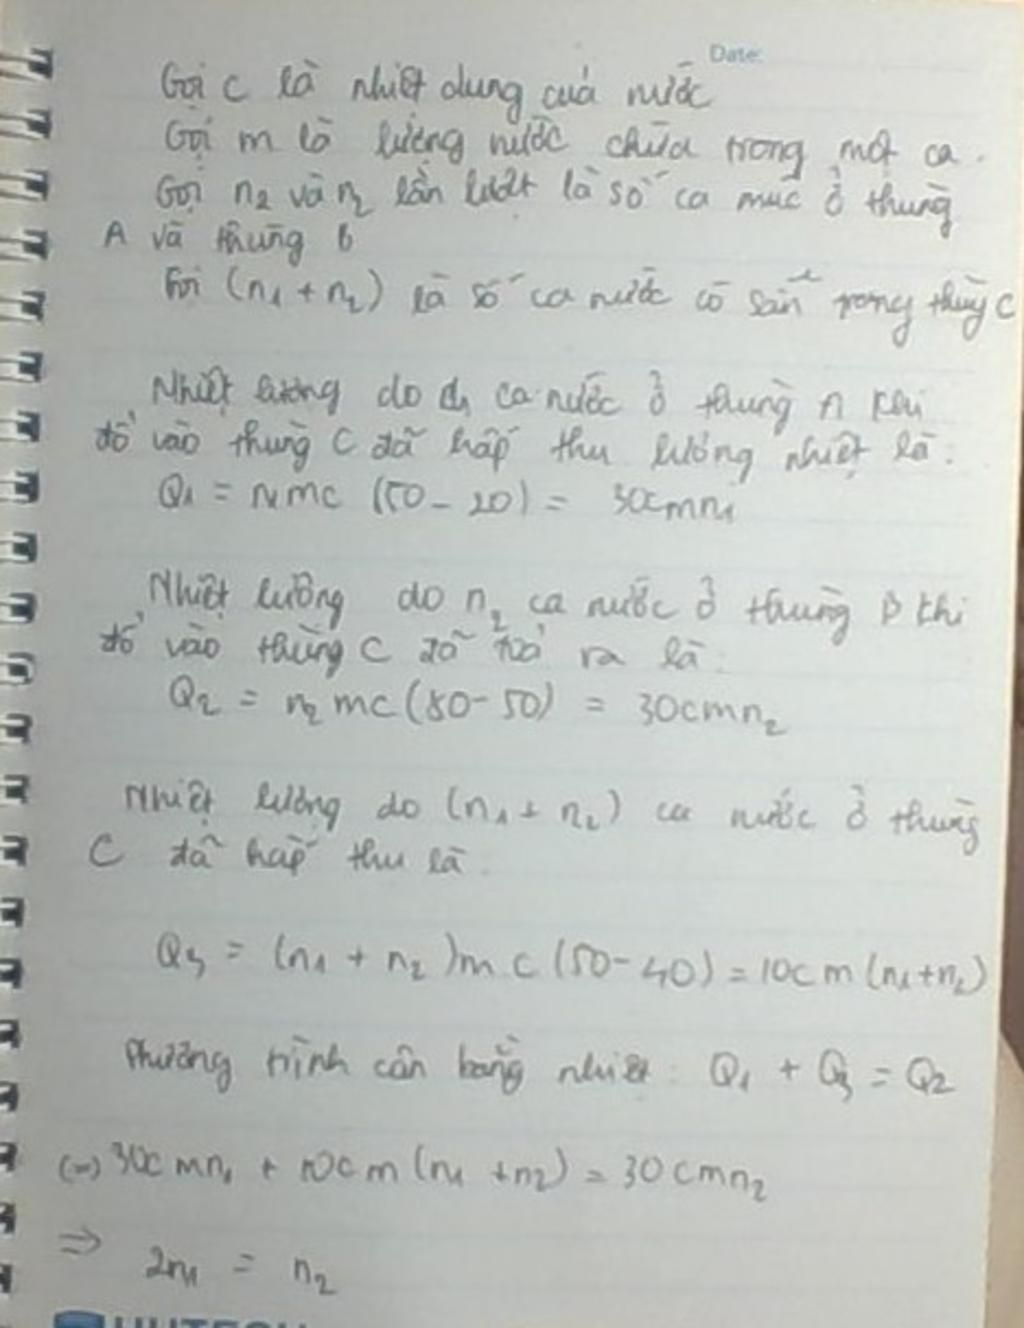 Date:
Gọi c là nhiệt dung của nước
Gọi m là lượng nước chứa trong một ca.
Gọi n2 và n2 lần lượt là số ca múc ở thùng
A và thùng B
Gọi (n1 + n2) là số ca nước có sẵn trong thùng C
Nhiệt lượng do n1 ca nước ở thùng A khi
đổ vào thùng C đã hấp thu lượng nhiệt là:
Q1 = n1mc (50 - 20) = 30cmn1
Nhiệt lượng do n2 ca nước ở thùng B khi
đổ vào thùng C đã toả ra là:
Q2 = n2 mc (80 - 50) = 30cmn2
Nhiệt lượng do (n1 + n2) ca nước ở thùng
C đã hấp thu là
Q3 = (n1 + n2)m c (50 - 40) = 10cm (n1+n2)
Phương trình cân bằng nhiệt: Q1 + Q3 = Q2
(=) 30cmn1 + 10cm (n1 + n2) = 30cmn2
=> 2n1 = n2
HUTECH